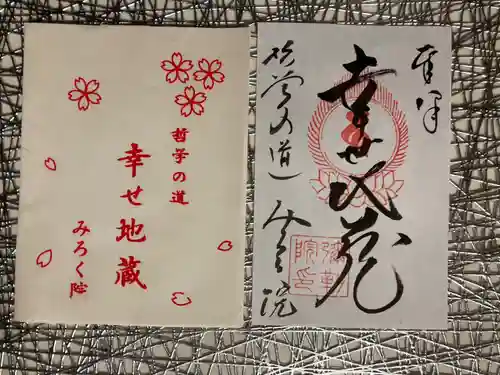 哲学の道
幸せ地蔵
みろく院
奉拝
幸せ地蔵
哲学の道
みろく院
弥勒院印